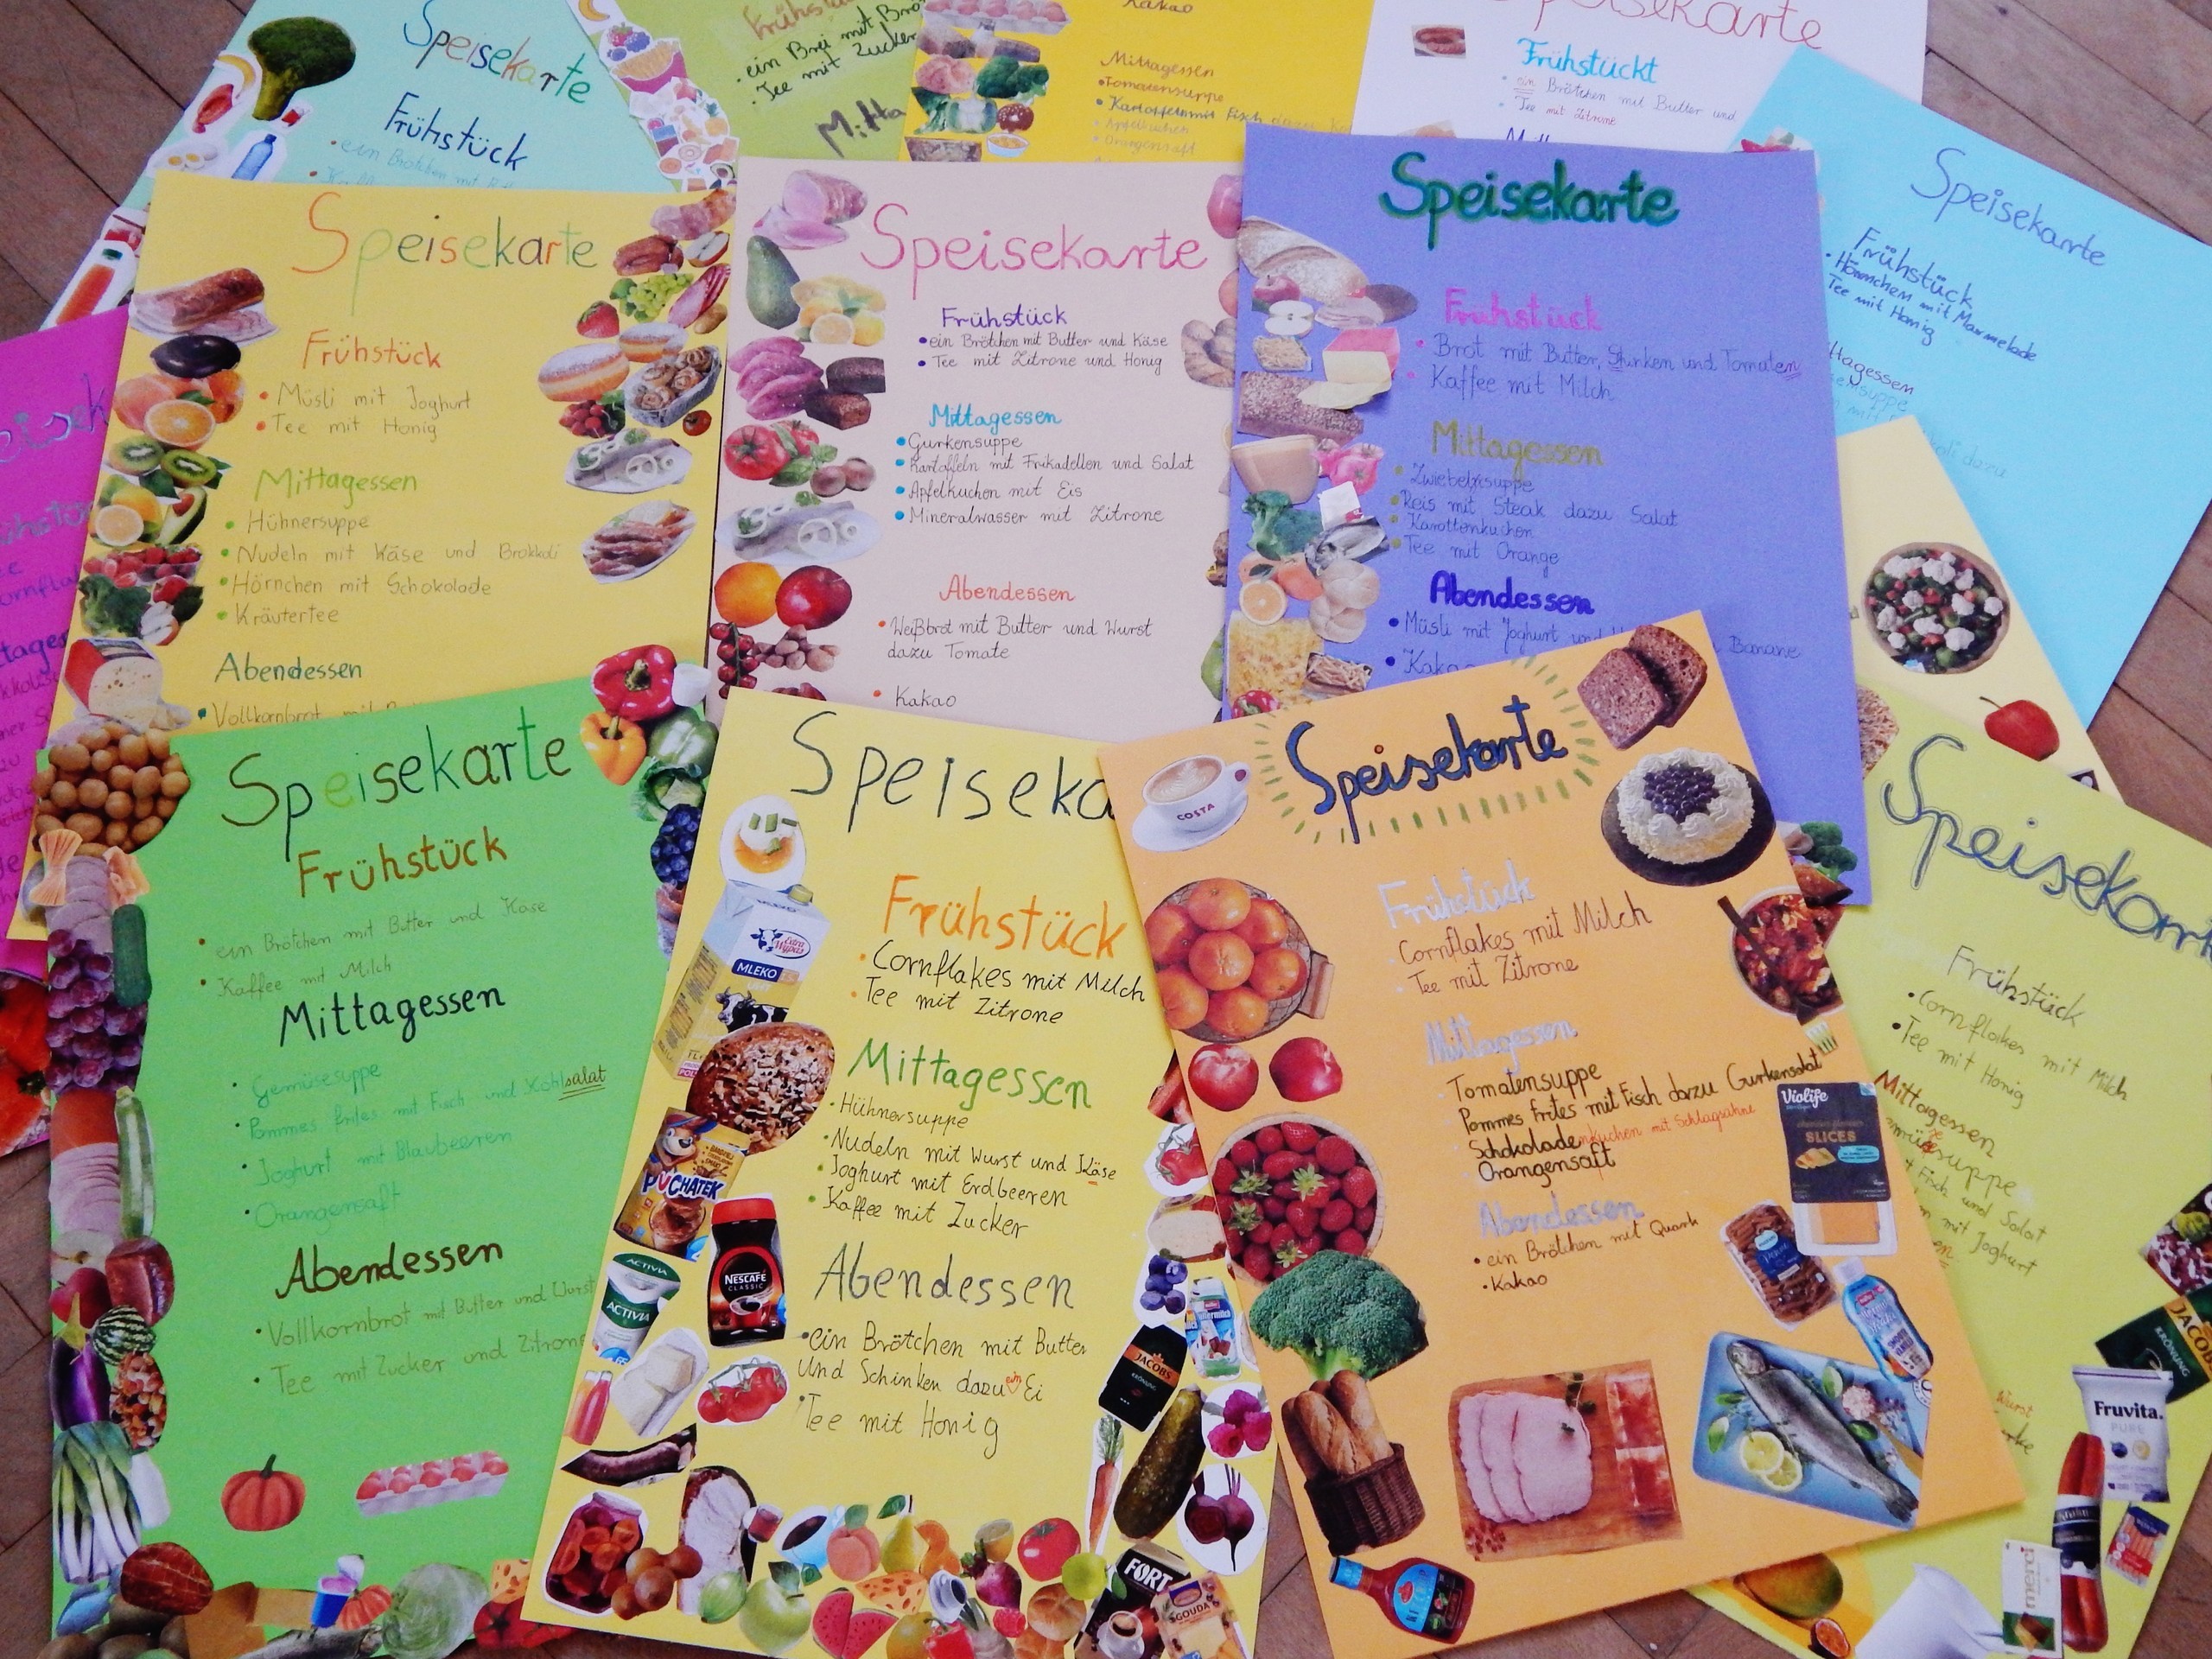 Speisekarte
Frühstück
ein Brötchen mit
Frühstü
ein Brei mit Brö
Tee mit Zucker
Mitta
Kakao
Mittagessen
Tomatensuppe
Kartoffeln mit Fisch dazu
Apfelkuchen
Orangensaft
Speisekarte
Frühstückt
ein Brötchen mit Butter und
Tee mit Zitrone
Speisekarte
Frühstück
Hörnchen mit Marmelade
Tee mit Honig
ttagessen
Speisekarte
Frühstück
Müsli mit Joghurt
Tee mit Honig
Mittagessen
Hühnersuppe
Nudeln mit Käse und Brokkoli
Hörnchen mit Schokolade
Kräutertee
Abendessen
Vollkornbrot mit
Speisekarte
Frühstück
ein Brötchen mit Butter und Käse
Tee mit Zitrone und Honig
Mittagessen
Gurkensuppe
Kartoffeln mit Frikadellen und Salat
Apfelkuchen mit Eis
Mineralwasser mit Zitrone
Abendessen
Weißbrot mit Butter und Wurst
dazu Tomate
Kakao
Speisekarte
Frühstück
Brot mit Butter, und Tomaten
Kaffee mit Milch
Mittagessen
Reis mit Steak dazu Salat
Karottenkuchen
Tee mit Orange
Abendessen
Müsli mit Joghurt und Banane
Kakao
Speisekarte
Frühstück
ein Brötchen mit Butter und Käse
Kaffee mit Milch
Mittagessen
Gemüsesuppe
Pommes frites mit Fisch und Kohlsalat
Joghurt mit Blaubeeren
Orangensaft
Abendessen
Vollkornbrot mit Butter und Wurst
Tee mit Zucker und Zitrone
Speiseka
Frühstück
Cornflakes mit Milch
Tee mit Zitrone
Mittagessen
Hühnersuppe
Nudeln mit Wurst und Käse
Joghurt mit Erdbeeren
Kaffee mit Zucker
Abendessen
ein Brötchen mit Butter
und Schinken dazu ein Ei
Tee mit Honig
MLEKO
PUCHATEK
NESCAFÉ
CLASSIC
ACTIVIA
ACTIVIA
JACOBS
KRÖNUNG
FORT
GOUDA
Speisekarte
COSTA
Frühstück
Cornflakes mit Milch
Tee mit Zitrone
Mittagessen
Tomatensuppe
Pommes frites mit Fisch dazu Gurkensalat
Schokoladenkuchen mit Schlagsahne
Orangensaft
Abendessen
ein Brötchen mit Quark
Kakao
Violife
SLICES
Speisekart
Frühstück
Cornflakes mit Milch
Tee mit Honig
Mittagessen
Fisch und Salat
mit Joghurt
Wurst
JACOBS
KRÖNUNG
Fruvita.
PURE
merci